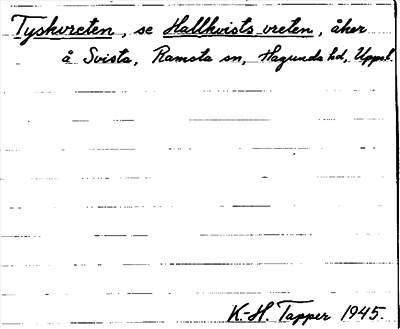 Tyskvreten, se Hallkvists vreten, åker
å Svista, Ramsta sn, Hagunda hd, Uppsl.
K.-H. Tapper 1945.